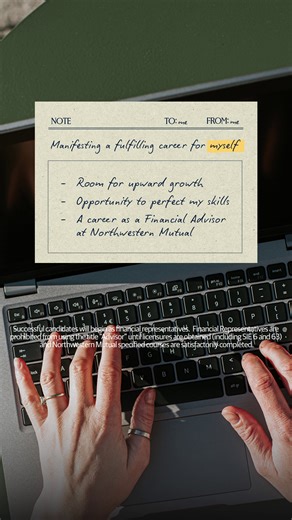 NOTE TO: me FROM: me
Manifesting a fulfilling career for myself
- Room for upward growth
- Opportunity to perfect my skills
- A career as a Financial Advisor
at Northwestern Mutual
Successful candidates will begin as financial representatives. Financial Representatives are
prohibited from using the title "Advisor" until licensures are obtained (including SIE 6 and 63)
and Northwestern Mutual specified courses are satisfactorily completed.